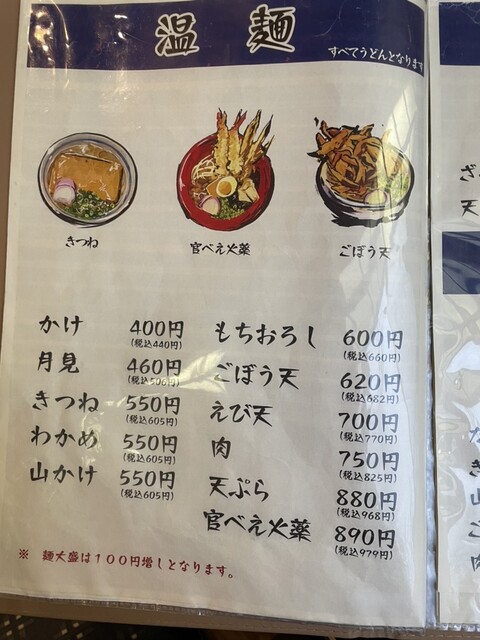 温麺
すべてうどんとなります
きつね
官べえ火薬
ごぼう天
かけ 400円
(税込440円)
月見 460円
(税込506円)
きつね 550円
(税込605円)
わかめ 550円
(税込605円)
山かけ 550円
(税込605円)
もちおろし 600円
(税込660円)
ごぼう天 620円
(税込682円)
えび天 700円
(税込770円)
肉 750円
(税込825円)
天ぷら 880円
(税込968円)
官べえ火薬 890円
(税込979円)
※ 麺大盛は100円増しとなります。
ざ
天
き
山
ご
肉